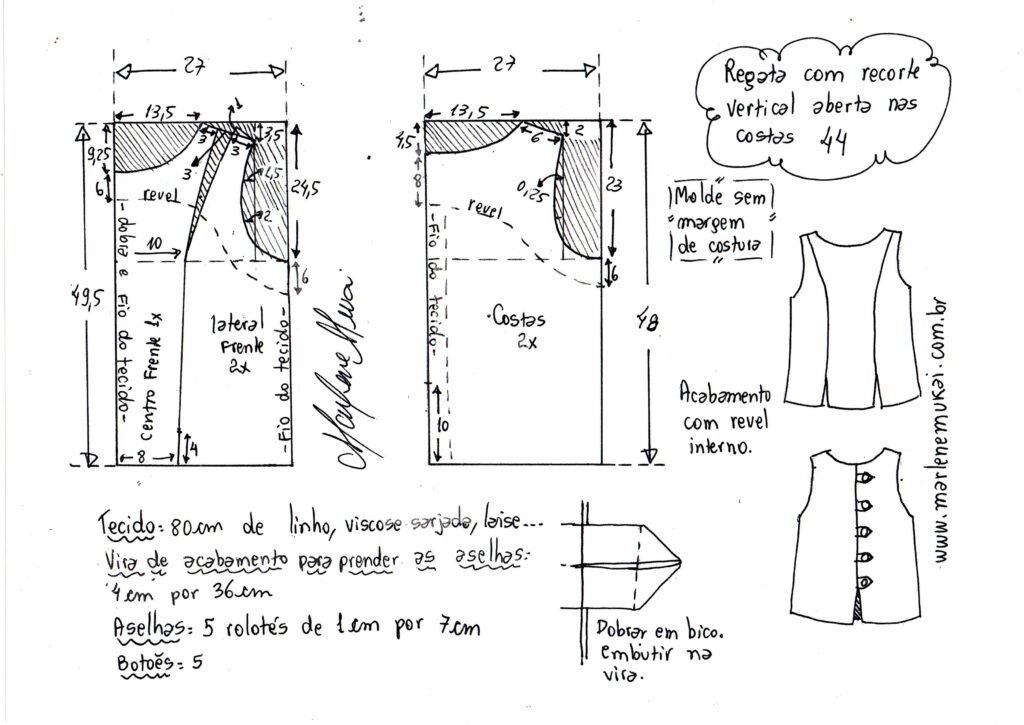 Regata com recorte
vertical aberta nas
costas 44
Molde sem
margem
de costura
27
13,5
1
3
3
3
3,5
9,25
6
revel
1,5
2
24,5
10
6
49,5
-dobra e Fio do tecido-
Centro Frente 1x
lateral
Frente
2x
-Fio do tecido-
4
8
Marlene Mukai
27
13,5
4,5
8
6
2
0,25
23
revel
6
-Fio do tecido-
Costas
2x
48
10
Acabamento
com revel
interno.
www.marlenemukai.com.br
Tecido: 80cm de linho, viscose sarjada, laise...
Vira de acabamento para prender as aselhas:
4cm por 36cm
Aselhas: 5 rolotés de 1cm por 7cm
Botões: 5
Dobrar em bico.
embutir na
vira.